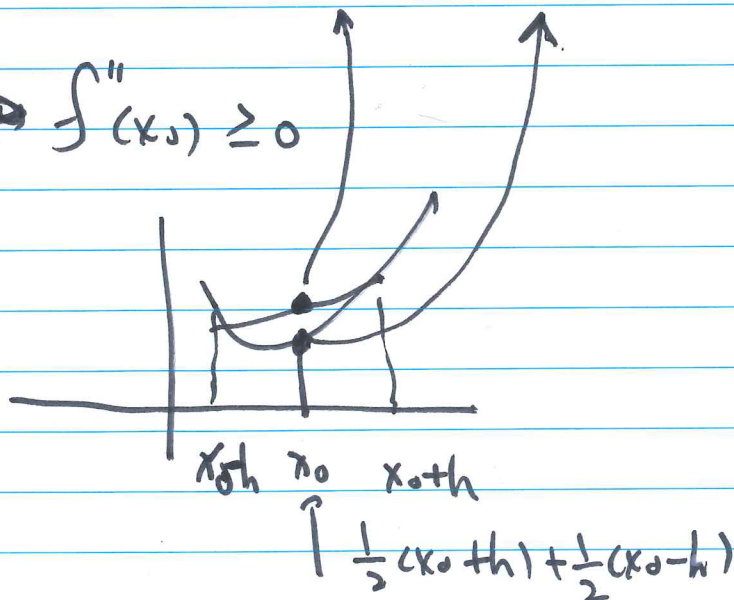 ⇒ f''(x₀) ≥ 0
x₀-h x₀ x₀+h
↑ ½(x₀+h)+½(x₀-h)